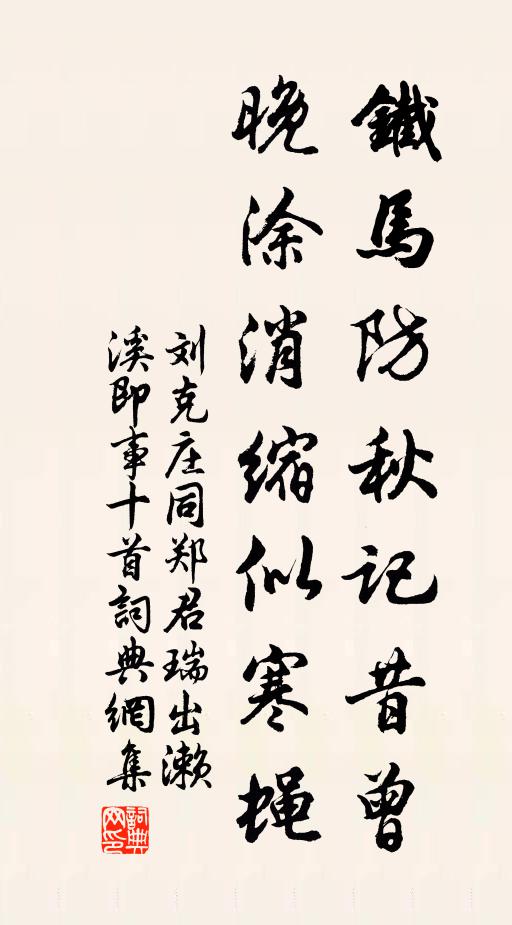 鐵馬防秋記昔曾
晚涂消縮似寒蝇
刘克庄同郑君瑞出濑
溪即事十首詞典網集
詞典
网印